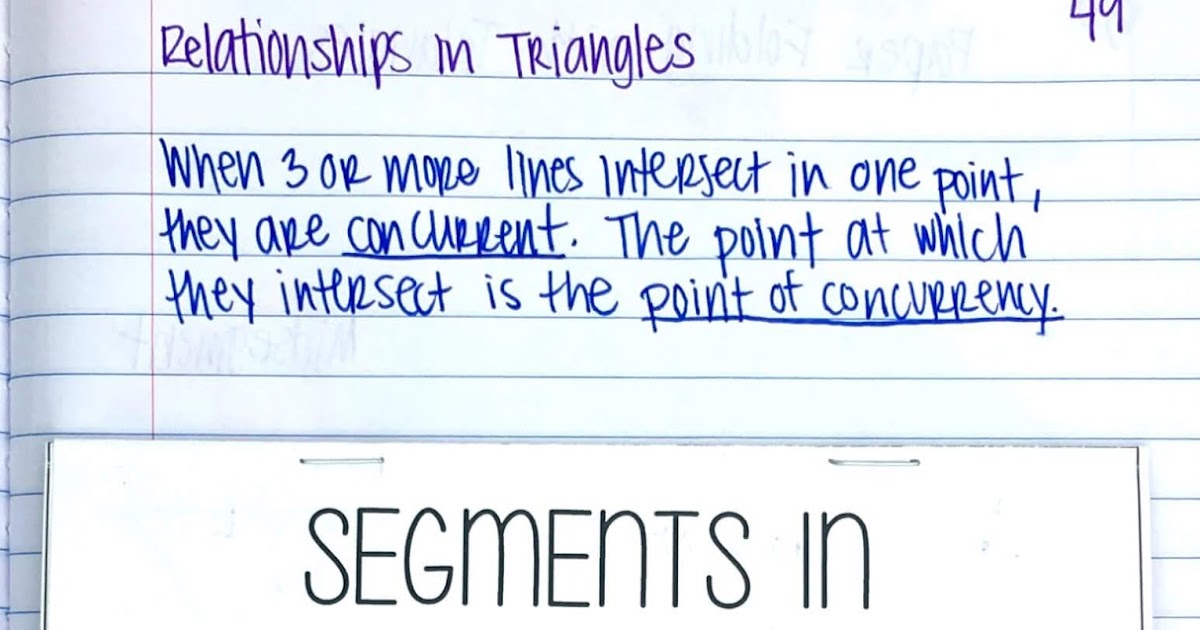 49
Relationships in Triangles
When 3 or more lines intersect in one point,
they are concurrent. The point at which
they intersect is the point of concurrency.
SEGMENTS IN